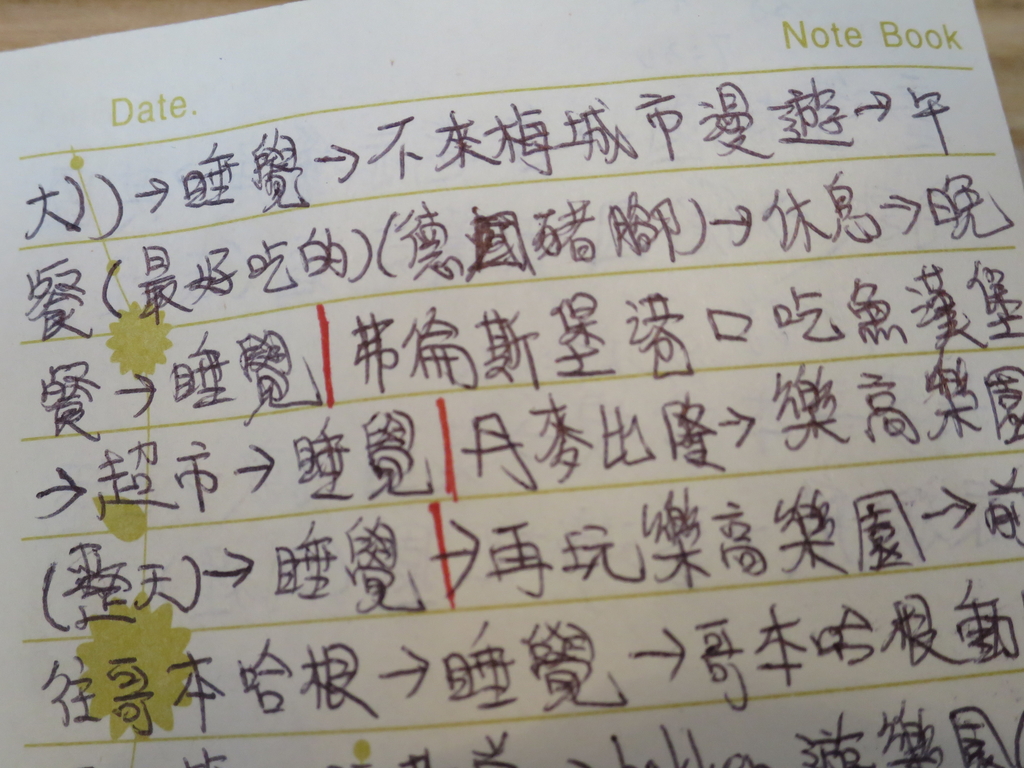 Note Book
Date.
大))→睡覺→不來梅城市漫遊→午
餐(最好吃的)(德國豬腳)→休息→晚
餐→睡覺|弗倫斯堡港口吃魚漢堡
→超市→睡覺|丹麥比隆→樂高樂園
(整天)→睡覺|→再玩樂高樂園→前
往哥本哈根→睡覺→哥本哈根動
樂園(